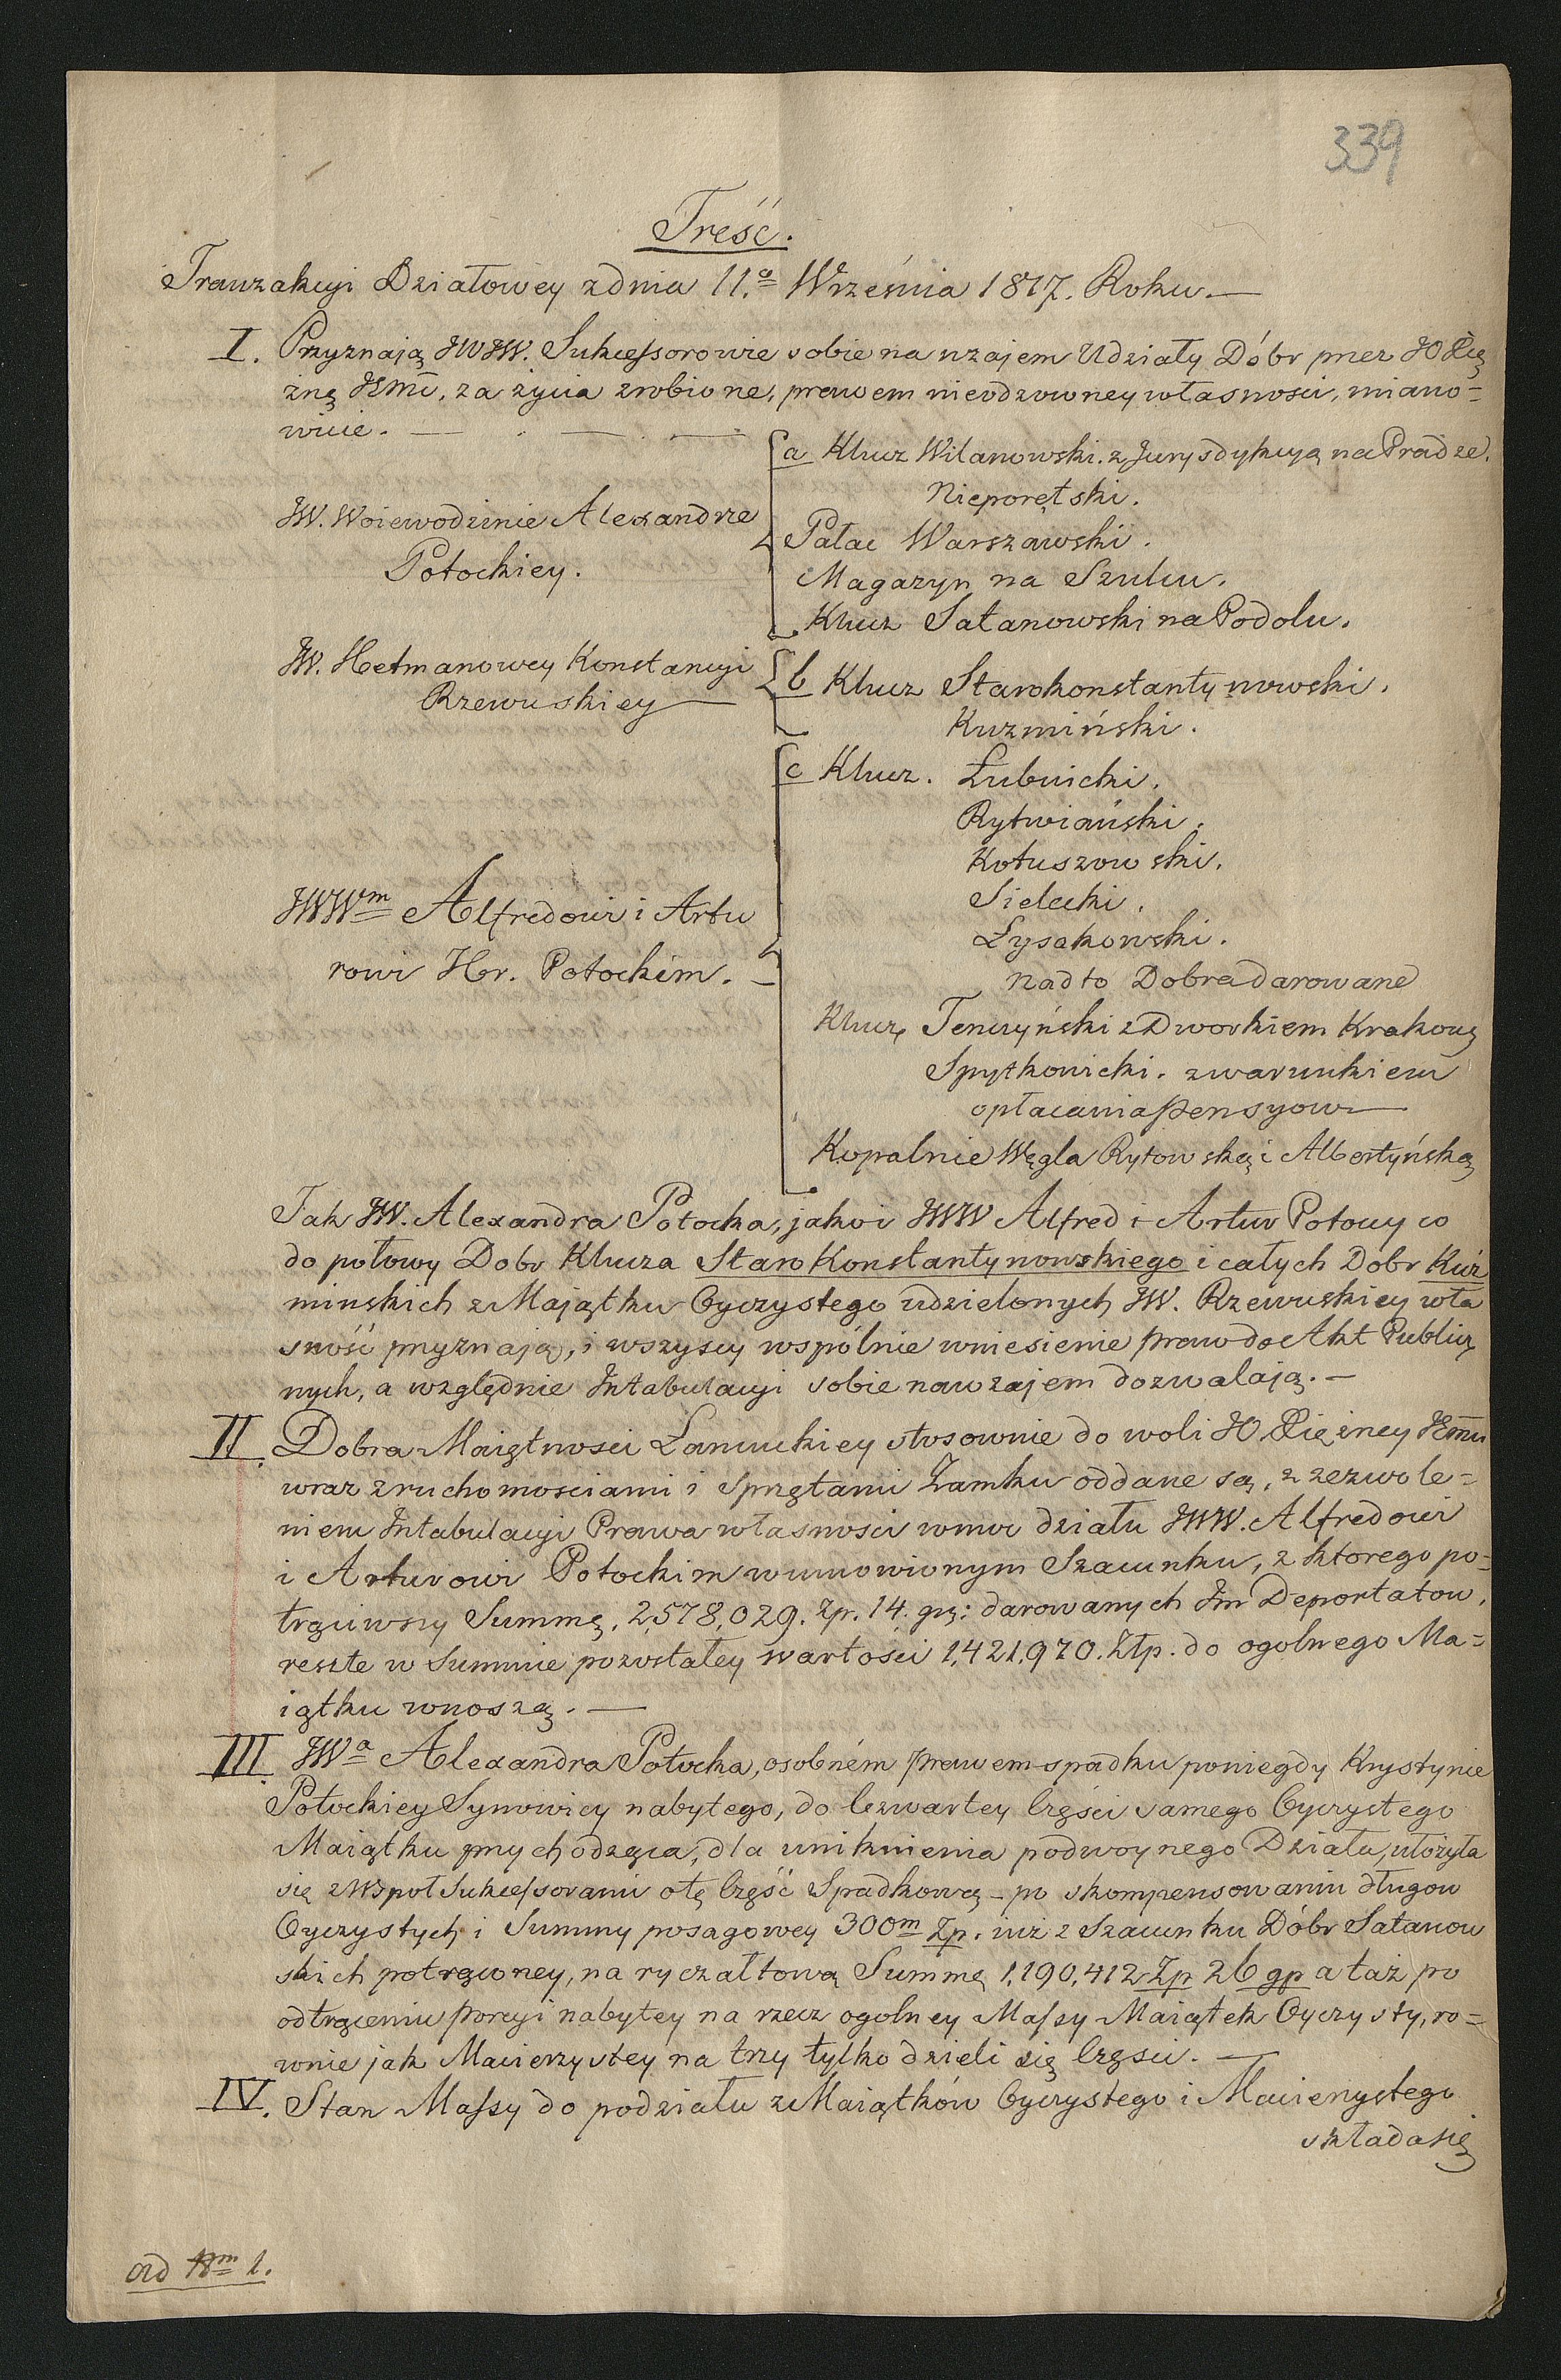 339
Treść.
Tranzakcyi Działowey z dnia 11.º Września 1817. Roku. —
I. Przyznają JWJW. Sukcessorowie sobie na wzajem Udziały Dóbr przez JO Xię
żnę Jmć, za życia zrobione, prawem nieodzowney własności, miano=
wicie. — . — . —
a Klucz Wilanowski. z Jurysdykcyą na Pradze.
Nieporętski.
JW. Woiewodzinie Alexandrze
Potockiey.
Pałac Warszawski.
Magazyn na Szulcu.
Klucz Satanowski na Podolu.
JW. Hetmanowey Konstancyi
Rzewuskiey —
b Klucz Starokonstantynowski.
Kuzmiński.
c Klucz. Łubnicki.
Rytwiański.
Kotuszowski.
Sielecki.
Łysakowski.
JWW͟m Alfredowi i Artu
rowi Hr. Potockim. —
nadto Dobra darowane
Klucz Tenczyński z Dworkiem Krakows
Spytkowicki. z warunkiem
opłacania pensyow —
Kopalnie Węgla Rytowską i Albertyńską
Tak JW. Alexandra Potocka, jako i JWW Alfred i Artur Potoccy co
do połowy Dobr Klucza Staro Konstantynowskiego i całych Dobr Kuź
minskich z Majątku Oyczystego udzielonych JW. Rzewuskiey wła
sność przyznają, i wszyscy wspólnie wniesienie praw do Akt Publicz
nych, a względnie Intabulacyi sobie nawzajem dozwalają. —
II. Dobra Maiętności Łancuckiey stosownie do woli JO Xiężney Jmci
wraz z ruchomościami i sprzętami Zamku oddane są, z zezwole=
niem Intabulacyi Prawa własności w moc działu JWW. Alfredowi
i Arturowi Potockim w umowionym Szacunku, z ktorego po=
trąciwszy Summę, 2,578,029. Zp. 14. gr: darowanych Im Deportatow,
resztę w Summie pozostałey wartości 1,421,970. Złp. do ogolnego Ma=
iątku wnoszą. —
III. JWa Alexandra Potocka, osobném prawem spadku po niegdy Krystynie
Potockiey Synowicy nabytego, do Czwartey Części samego Oyczystego
Maiątku przychodząca, dla uniknienia podwoynego Działu, ułożyła
się z Wspoł Sukcessorami o tę Część Spadkową — po skompensowaniu długow
Oyczystych i Summy posagowey 300m Zp. iuż z Szacunku Dóbr Satanow
skich potrąconey, na ryczałtową Summę 1,190,412 Zp 26 gp a taż po
odtrąceniu porcyi nabytey na rzecz ogolney Massy Maiątek Oyczysty, ro=
wnie jak Macierzystey na trzy tylko dzieli się Części. —
IV. Stan Massy do podziału z Maiątków Oyczystego i Macierzystego
składa się
ad Nm 1.